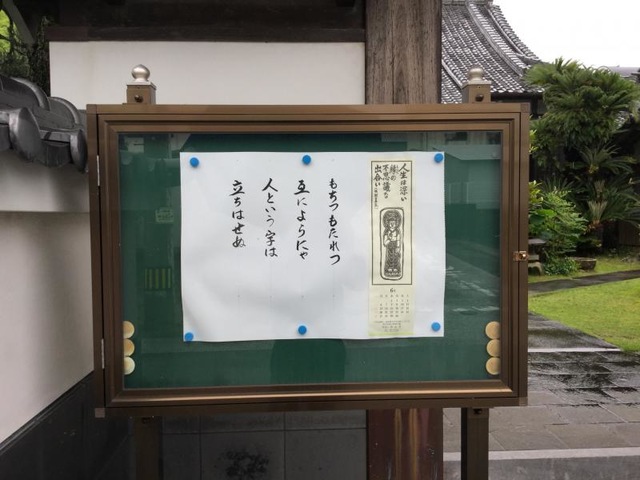 人生は深い
縁の
不思議な
出会い
6
もちつもたれつ
互によらにゃ
人という字は
立ちはせぬ